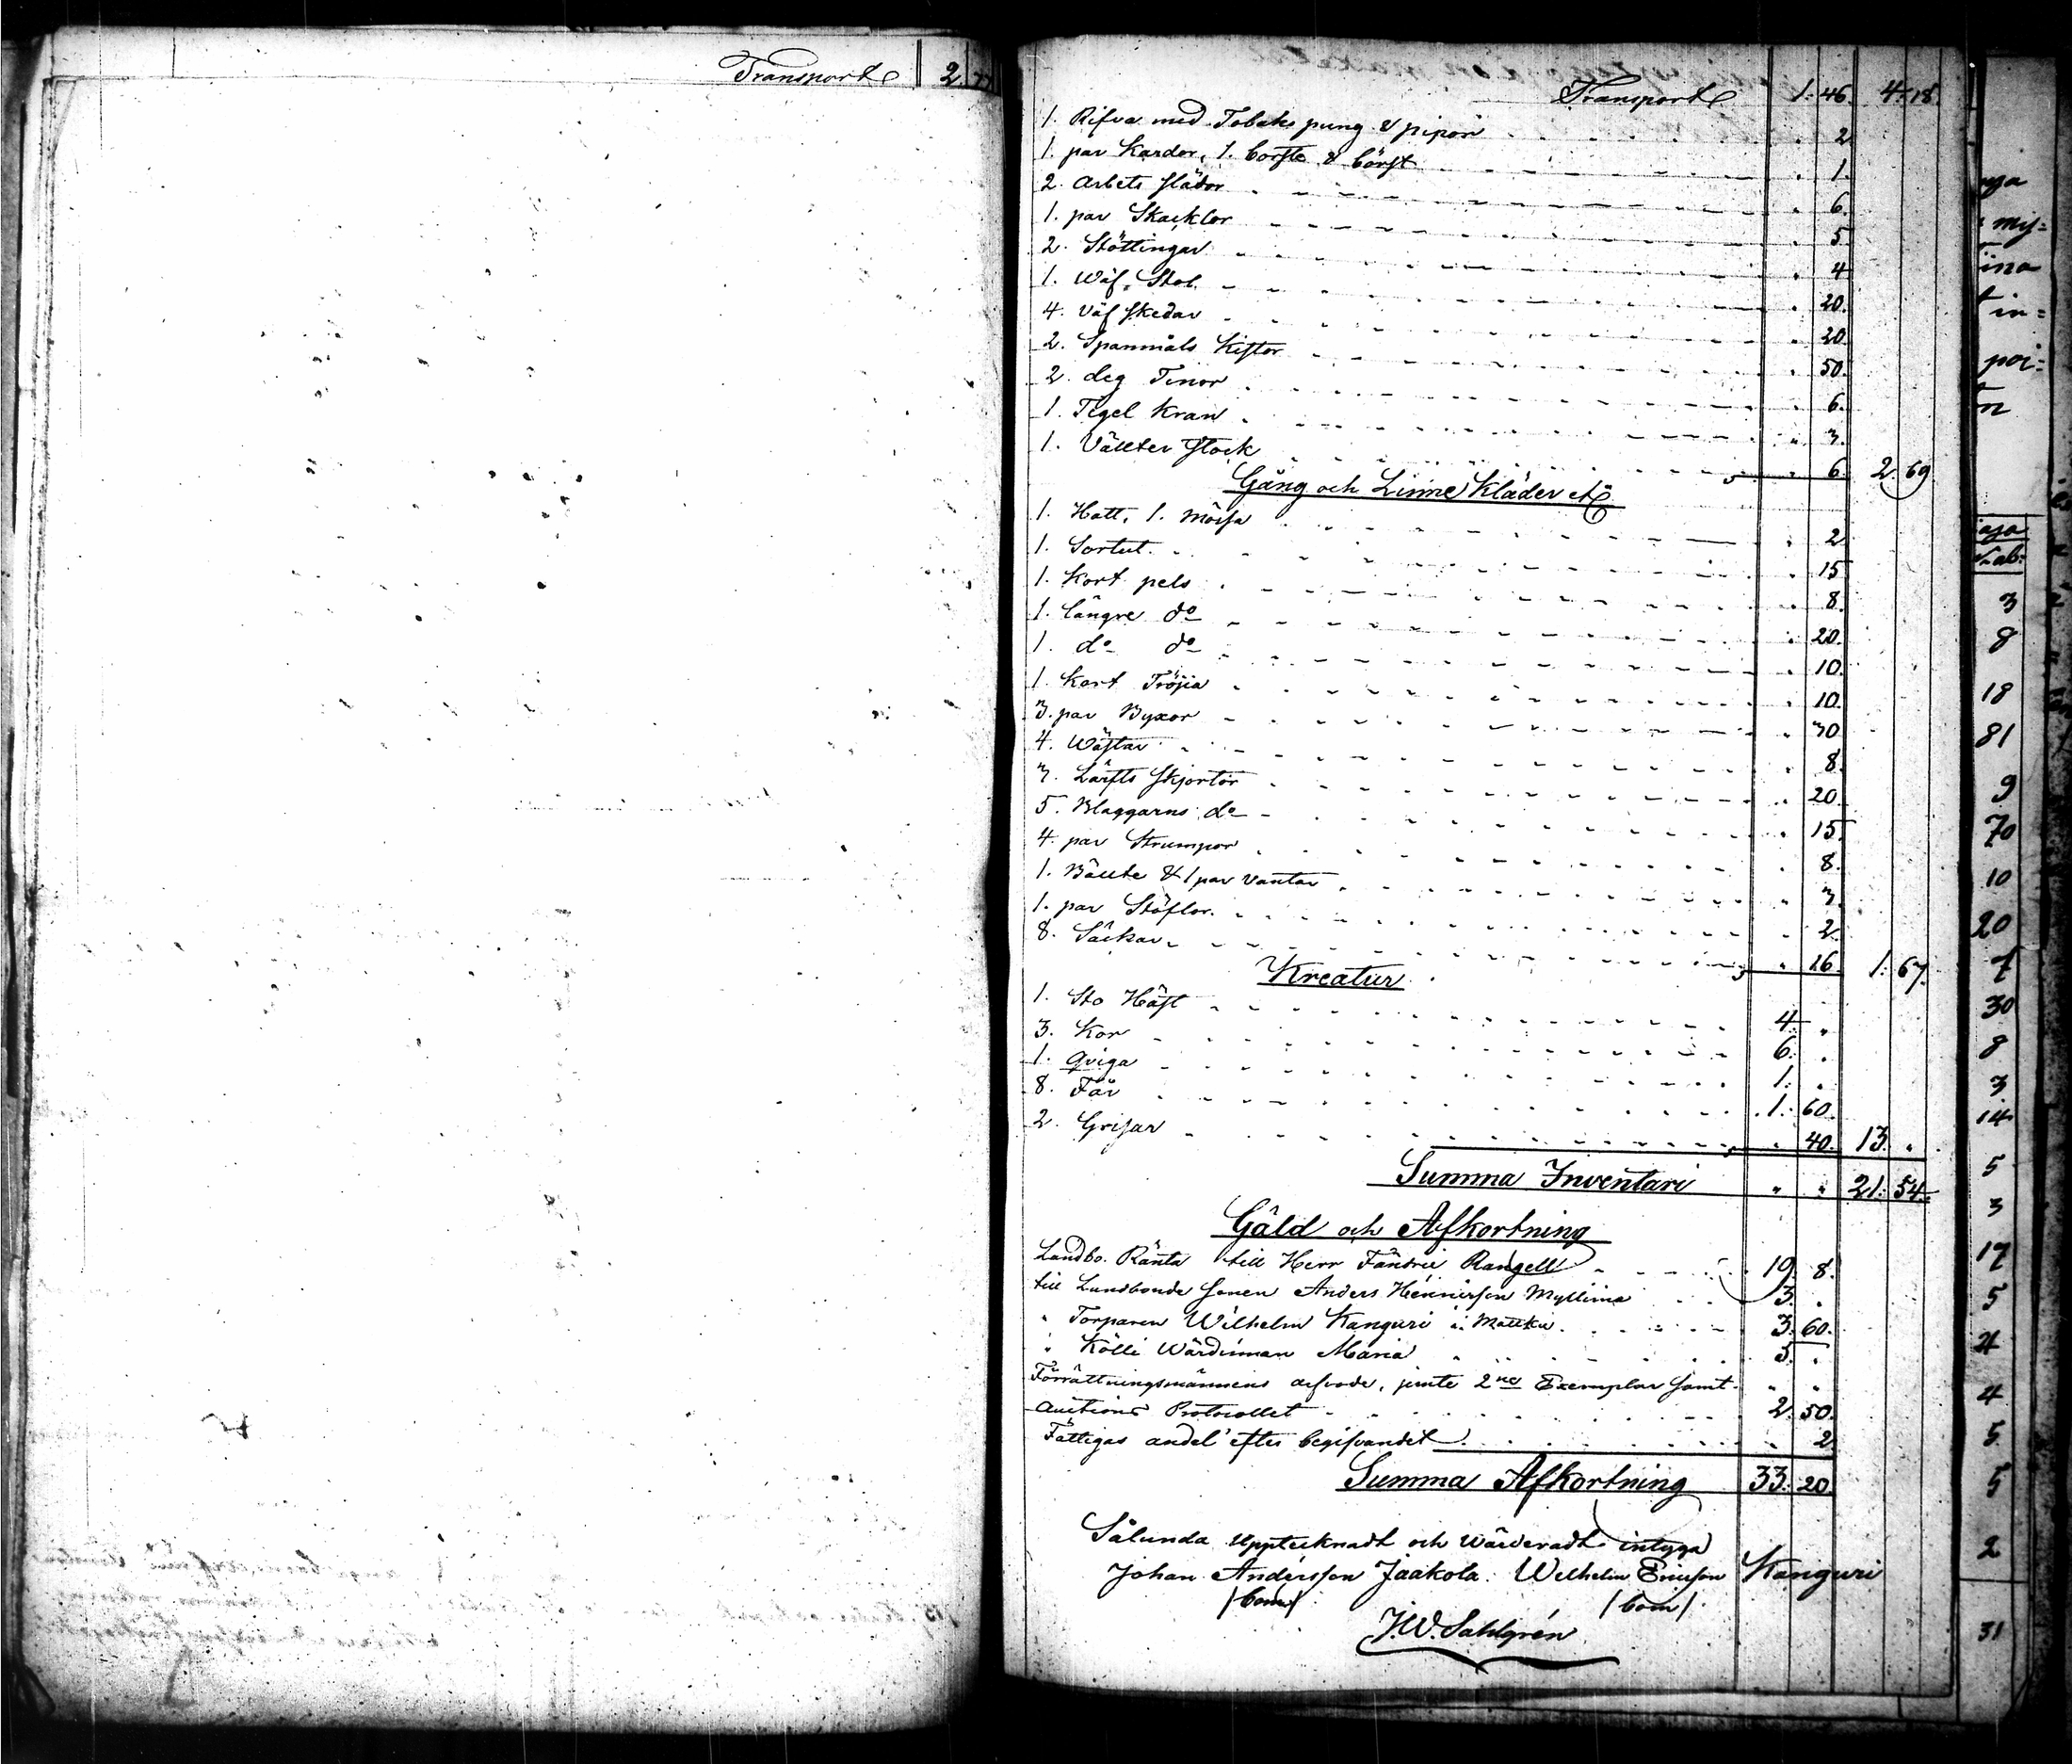 Transport 2. 77
Transport 1. 46. 4. 18.
1. Rifva med Tobaks pung & pipor " 2
1. par Kardor, 1. borste & börst " 1.
2. Arbets slädor " 6.
1. par Skacklor " 5
2. Stöttingar " 4
1. Wäf Stol " 20.
4. Väf Skedar " 20
2. Spanmåls Kistor " 50.
2. deg Tinor " 6.
1. Tegel Kran " 3.
1. Vällter Stock " 6. 2. 69
Gång och Linne Kläder etc
1. Hatt, 1. Mössa " 2
1. Sortut " 15
1. Kort pels " 8.
1. längre do " 20.
1. do do " 10.
1. Kort Tröjia " 10.
3. par Byxor " 30
4. Wästar " 8.
3. Lärfts Skjortor " 20.
5. Blaggarns do " 15.
4. par Strumpor " 8.
1. Bällte & 1 par Vantar " 3
1. par Stöflor " 2.
8. Säckar " 16. 1. 67.
Kreatur
1. Sto Häst 4. "
3. Kor 6. "
1. Qviga 1. "
8. Får 1. 60.
2. Grisar " 40. 13. "
Summa Inventarii " " 21. 54.
Gäld och Afkortning
Landbo Ränta till Herr Fändric Rangell 19. 8.
till Lundbonde sonen Anders Henricsson Myllima 3. "
" Torparen Wilhelm Kanguri i Mattku 3. 60.
" Kölli Wärdinnan Maria 5. "
Förrättningsmännens arfvode, jemte 2ne Exemplar samt " "
Auctions Protocollet 2. 50.
Fattigas andel efter begifvandet " 2
Summa Afkortning 33. 20.
Sålunda upptecknadt och Wärderadt intyga
Johan Andersson Jaakola. Wilhelm Ericsson Kanguri
J. W. Sahlgrén
my=
ina
in=
poi=
3
8
18
81
9
70
10
20
7
30
8
3
14
5
3
17
5
4
5
5
2
31